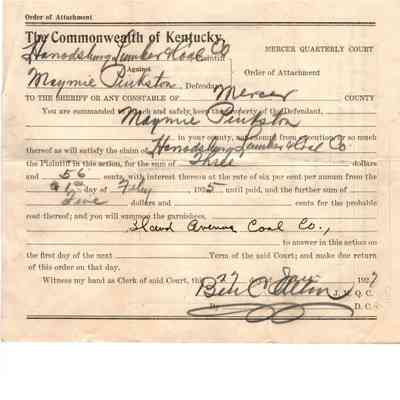 Order of Attachment
The Commonwealth of Kentucky,
Harrodsburg Lumber & Coal Co Plaintiff
MERCER QUARTERLY COURT
Against
Order of Attachment
Maymie Pinkston, Defendant
TO THE SHERIFF OR ANY CONSTABLE OF Mercer COUNTY
You are commanded to attach and safely keep the property of the Defendant,
Maymie Pinkston
in your county, not exempt from execution, or so much
thereof as will satisfy the claim of Harrodsburg Lumber & Coal Co.
the Plaintiff in this action, for the sum of Three dollars
and 56 cents, with interest thereon at the rate of six per cent per annum from the
day of Feby, 1925 until paid, and the further sum of
Five dollars and cents for the probable
cost thereof; and you will summon the garnishees,
Island Avenue Coal Co.,
to answer in this action on
the first day of the next Term of the said Court; and make due return
of this order on that day.
Witness my hand as Clerk of said Court, this 27 192
Q. C.
By D. C.